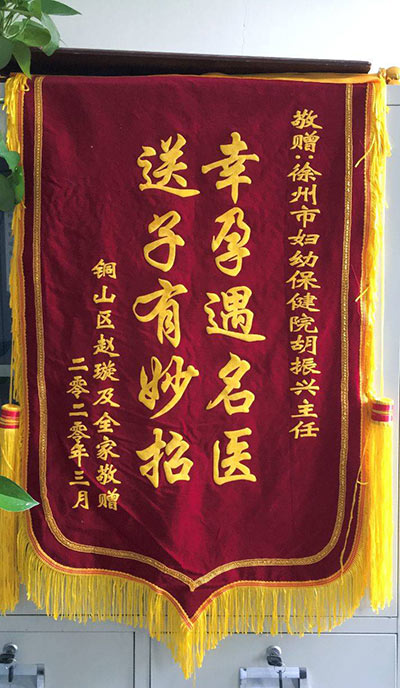 敬赠:徐州市妇幼保健院胡振兴主任
幸孕遇名医
送子有妙招
铜山区赵璇及全家敬赠
二零二零年三月